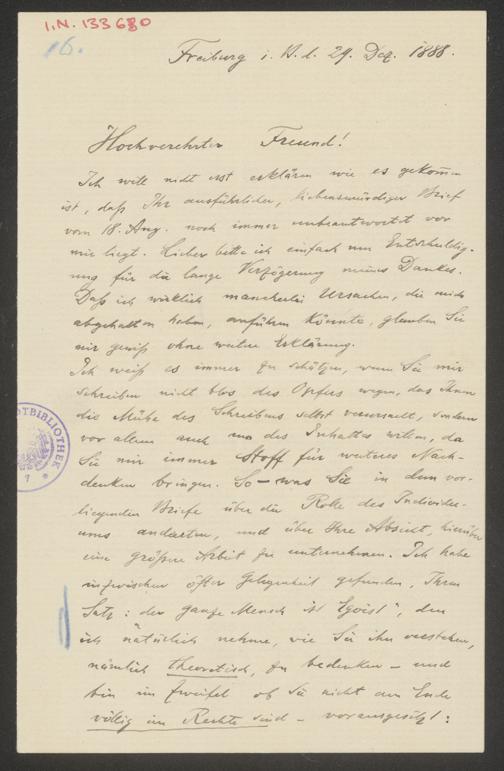 I.N. 133680
16.
Freiburg i. B. d. 29. Dez. 1888.
Hochverehrter Freund!
Ich will nicht erst erklären wie es gekommen
ist, daß Ihr ausführlicher, liebenswürdiger Brief
vom 18. Aug. noch immer unbeantwortet vor
mir liegt. Lieber bitte ich einfach um Entschuldig-
ung für die lange Verzögerung meines Dankes.
Daß ich wirklich mancherlei Ursachen, die mich
abgehalten haben, anführen könnte, glauben Sie
mir gewiß ohne weitere Erklärung.
Ich weiß es immer zu schätzen, wenn Sie mir
schreiben nicht blos des Opfers wegen, das Ihnen
die Mühe des Schreibens selbst verursacht, sondern
vor allem auch um des Inhaltes willen, da
Sie mir immer Stoff für weiteres Nach-
denken bringen. So – was Sie in dem vor-
liegenden Briefe über die Rolle des Individu-
ums andeuten, und über Ihre Absicht, hierüber
eine größere Arbeit zu unternehmen. Ich habe
inzwischen öfter Gelegenheit gefunden, Ihren
Satz: der ganze Mensch ist Egoist", den
ich natürlich nehme, wie Sie ihn verstehen,
nämlich theoretisch, zu bedenken – und
bin im Zweifel ob Sie nicht am Ende
völlig im Rechte sind – vorausgesetzt:
TBIBLIOTHEK